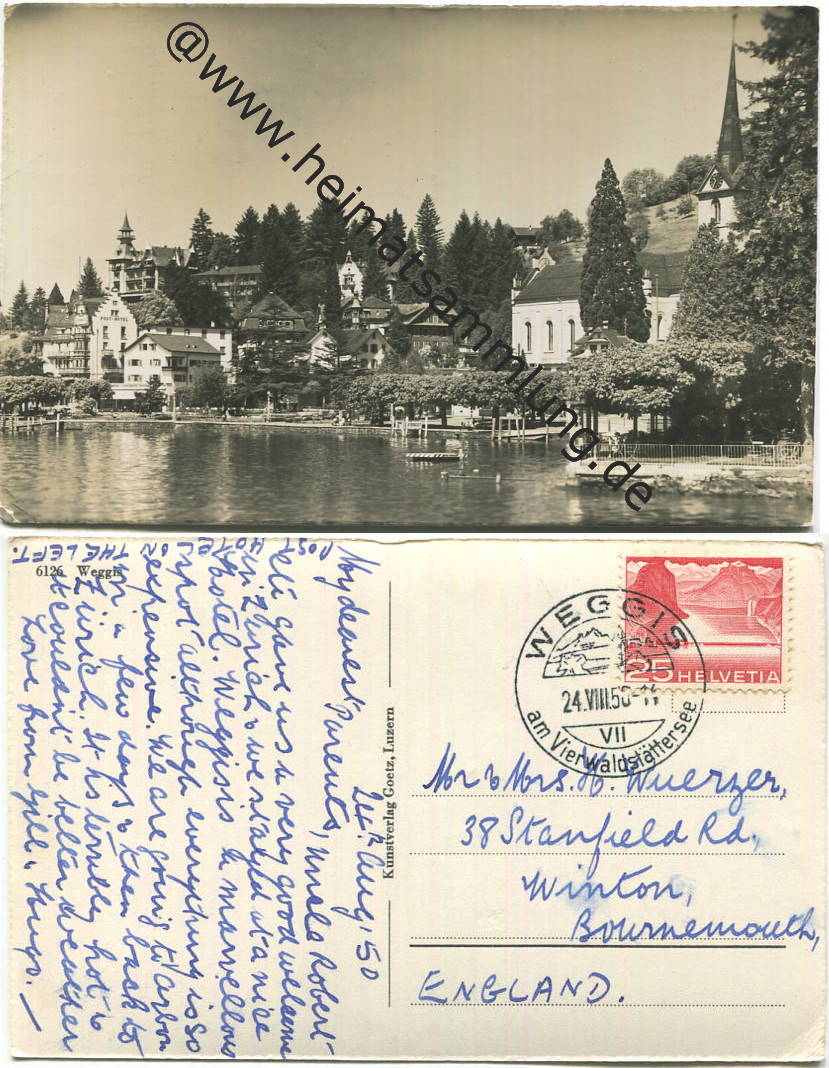 @www.heimatsammlung.de
POST HOTEL
6126 Weggis
POST
HOTEL
ON
THE LEFT.
24th Aug. '50
My dearest Parents, Uncle Robert
Eli gave us a very good welcome
in Zürich & we stayed at a nice
hotel. Weggis is a marvellous
spot although everything is so
expensive. We are going to Arbon
for a few days & then back to
Zürich. It is terribly hot &
couldn't be better weather
Love from Gill & Hugo.
Kunstverlag Goetz, Luzern
25 HELVETIA
WEGGIS
24.VIII.50-11
VII
am Vierwaldstättersee
Mr & Mrs. H. Wuerzer,
38 Stanfield Rd.,
Winton,
Bournemouth,
ENGLAND.